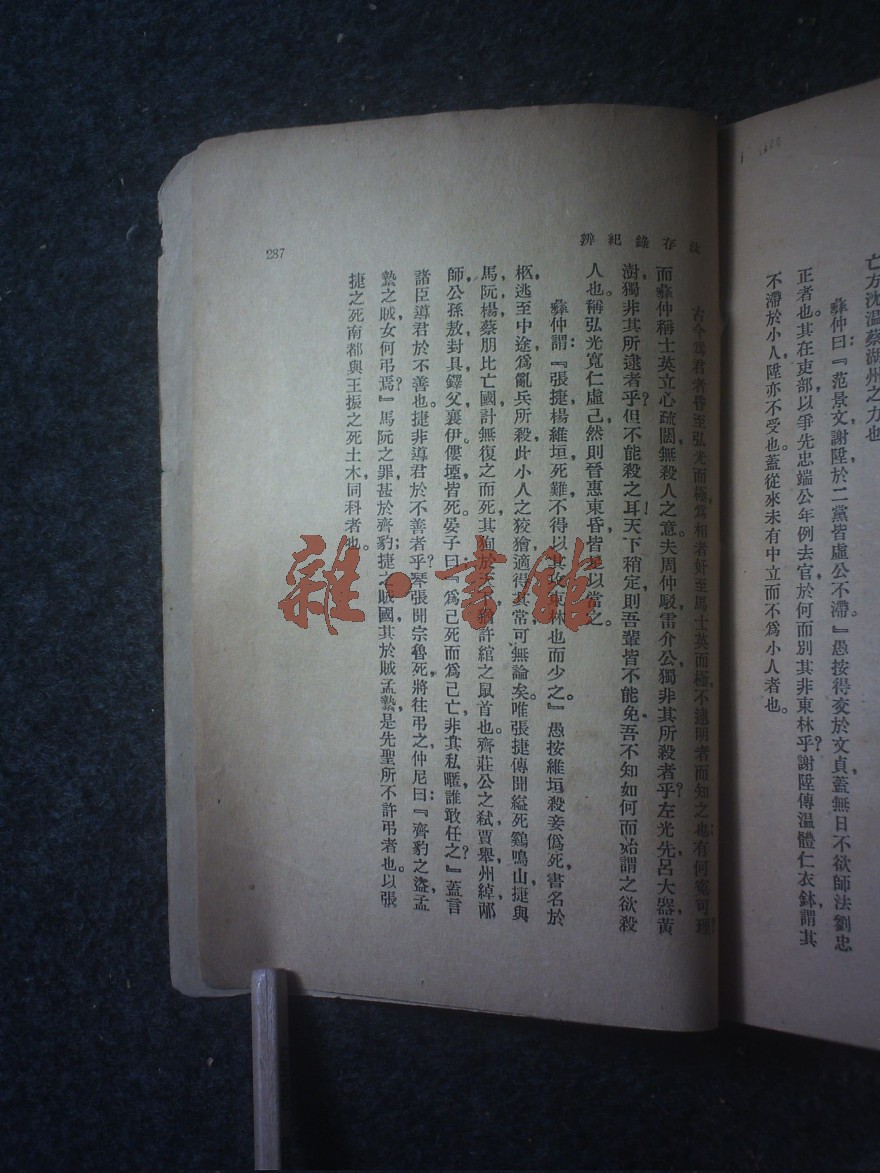 亡方沈溫蔡湖州之力也
彝仲曰:『范景文謝陞於二黨皆虛公不滯。』愚按得交於文貞蓋無日不欲師法劉忠
正者也。其在吏部以爭先忠端公年例去官於何而別其非東林乎?謝陞傳溫體仁衣鉢,謂其
不滯於小人陞亦不受也。蓋從來未有中立而不爲小人者也。
存錄紀辨
古今爲君者昏至弘光而極,爲相者奸至馬士英而極,不逮明者而知之也;有何冤可理
而彝仲稱士英立心疏闊,無殺人之意。夫周仲馭,雷介公,獨非其所殺者乎?左光先,呂大器,黃
澍,獨非其所逮者乎?但不能殺之耳!天下稍定,則吾輩皆不能免,吾不知如何而始謂之欲殺
人也。稱弘光寬仁虛己,然則晉惠東昏皆足以當之。
彝仲謂:『張捷楊維垣死難,不得以其攻東林也而少之。』愚按維垣殺妾僞死,書名於
柩,逃至中途,爲亂兵所殺,此小人之狡獪適得其常,可無論矣。唯張捷傳聞縊死鷄鳴山,捷與
馬,阮,楊,蔡朋比亡國,計無復之而死,其狗於
許綰之鼠首也。齊莊公之弒,賈舉,州綽,邴
師,公孫敖,封具,鐸父,襄伊,僂堙皆死。晏子曰:『爲己死而爲己亡,非其私暱誰敢任之?』蓋言
諸臣導君於不善也。捷非導君於不善者乎?琴張聞宗魯死,將往弔之,仲尼曰:『齊豹之盜,孟
縶之賊,女何弔焉?』馬阮之罪甚於齊豹;捷之賊國,其於賊孟縶,是先聖所不許弔者也。以張
捷之死南都,與王振之死土木同科者也。
287
雜·書館